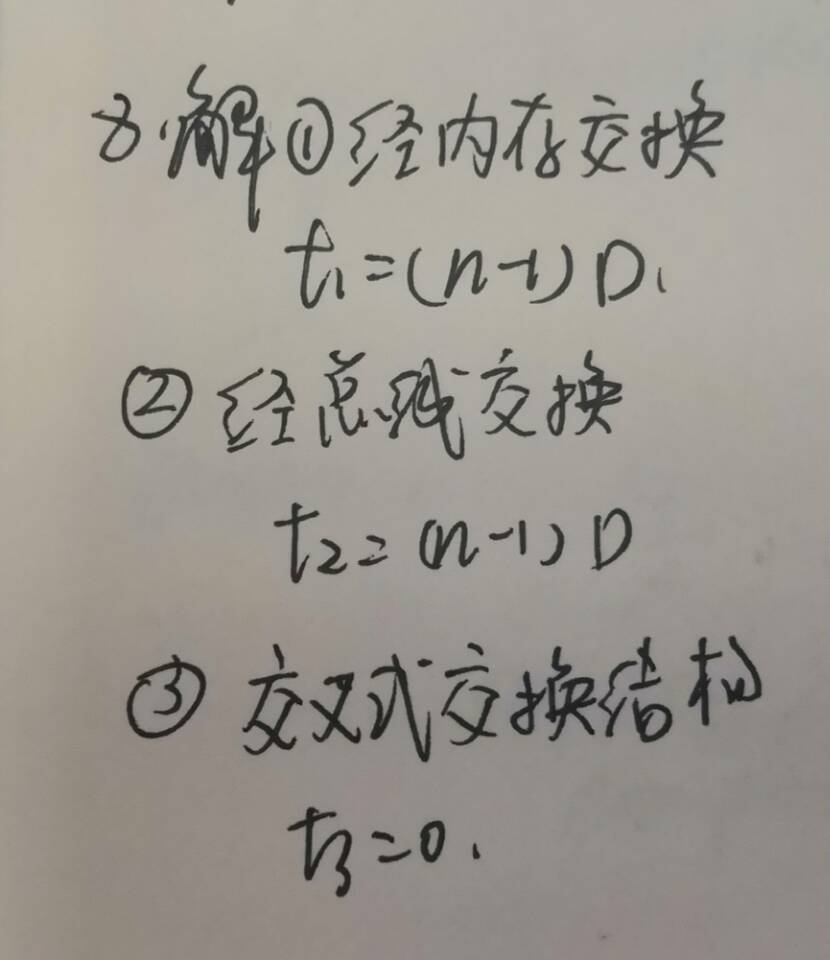 8.解①经内存交换
t₁=(n-1)D.
②经总线交换
t₂=(n-1)D
③交叉式交换结构
t₃=0.